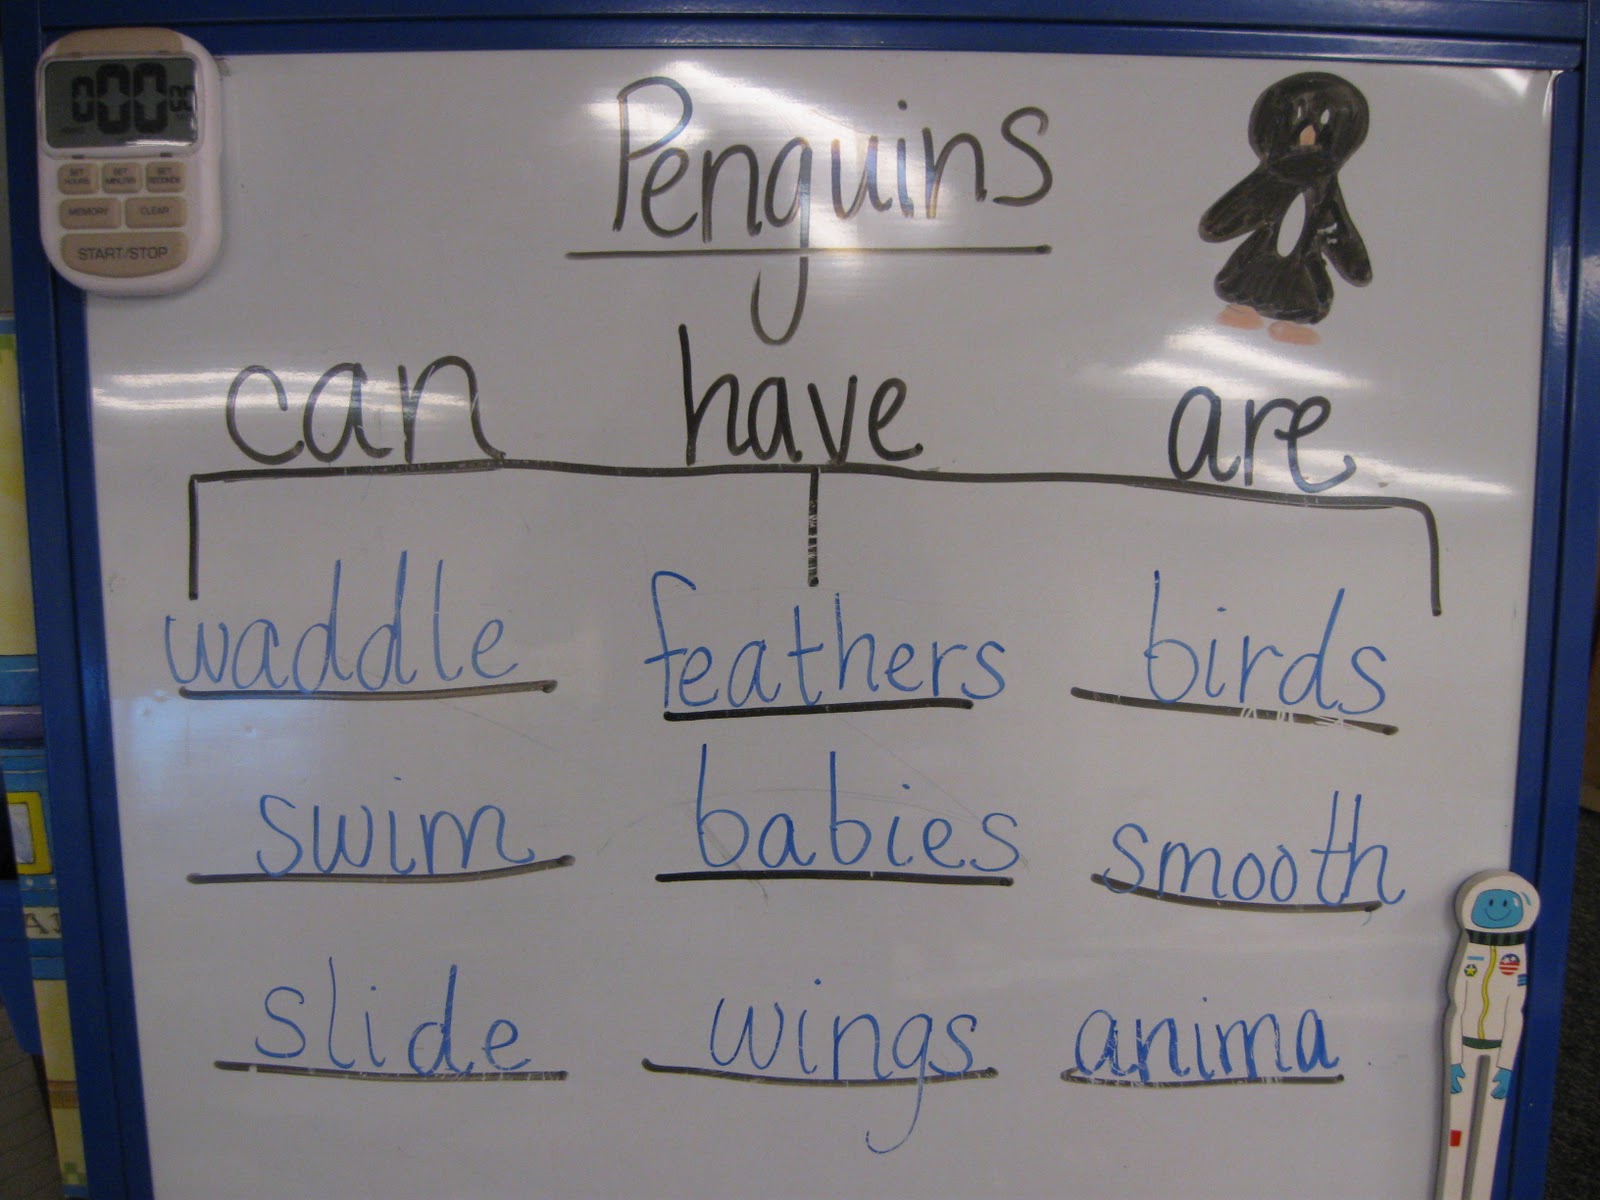 000 00
SET HOURS SET MINUTES SET SECONDS
MEMORY CLEAR
START/STOP
Penguins
can have are
waddle feathers birds
swim babies smooth
slide wings anima